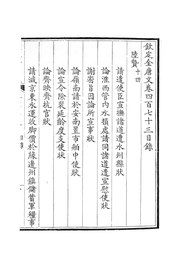 欽定全唐文卷四百七十三目錄
陸贄十四
請遣使臣宣撫諸道遭水州縣狀
論淮西管內水損處請同諸道遣宣慰使狀
謝密旨因論所宣事狀
論嶺南請於安南置市舶中使狀
論宣令除裴延齡度支使狀
論齊映齊抗官狀
請減京東水運收腳價於緣邊州鎮儲蓄軍糧事